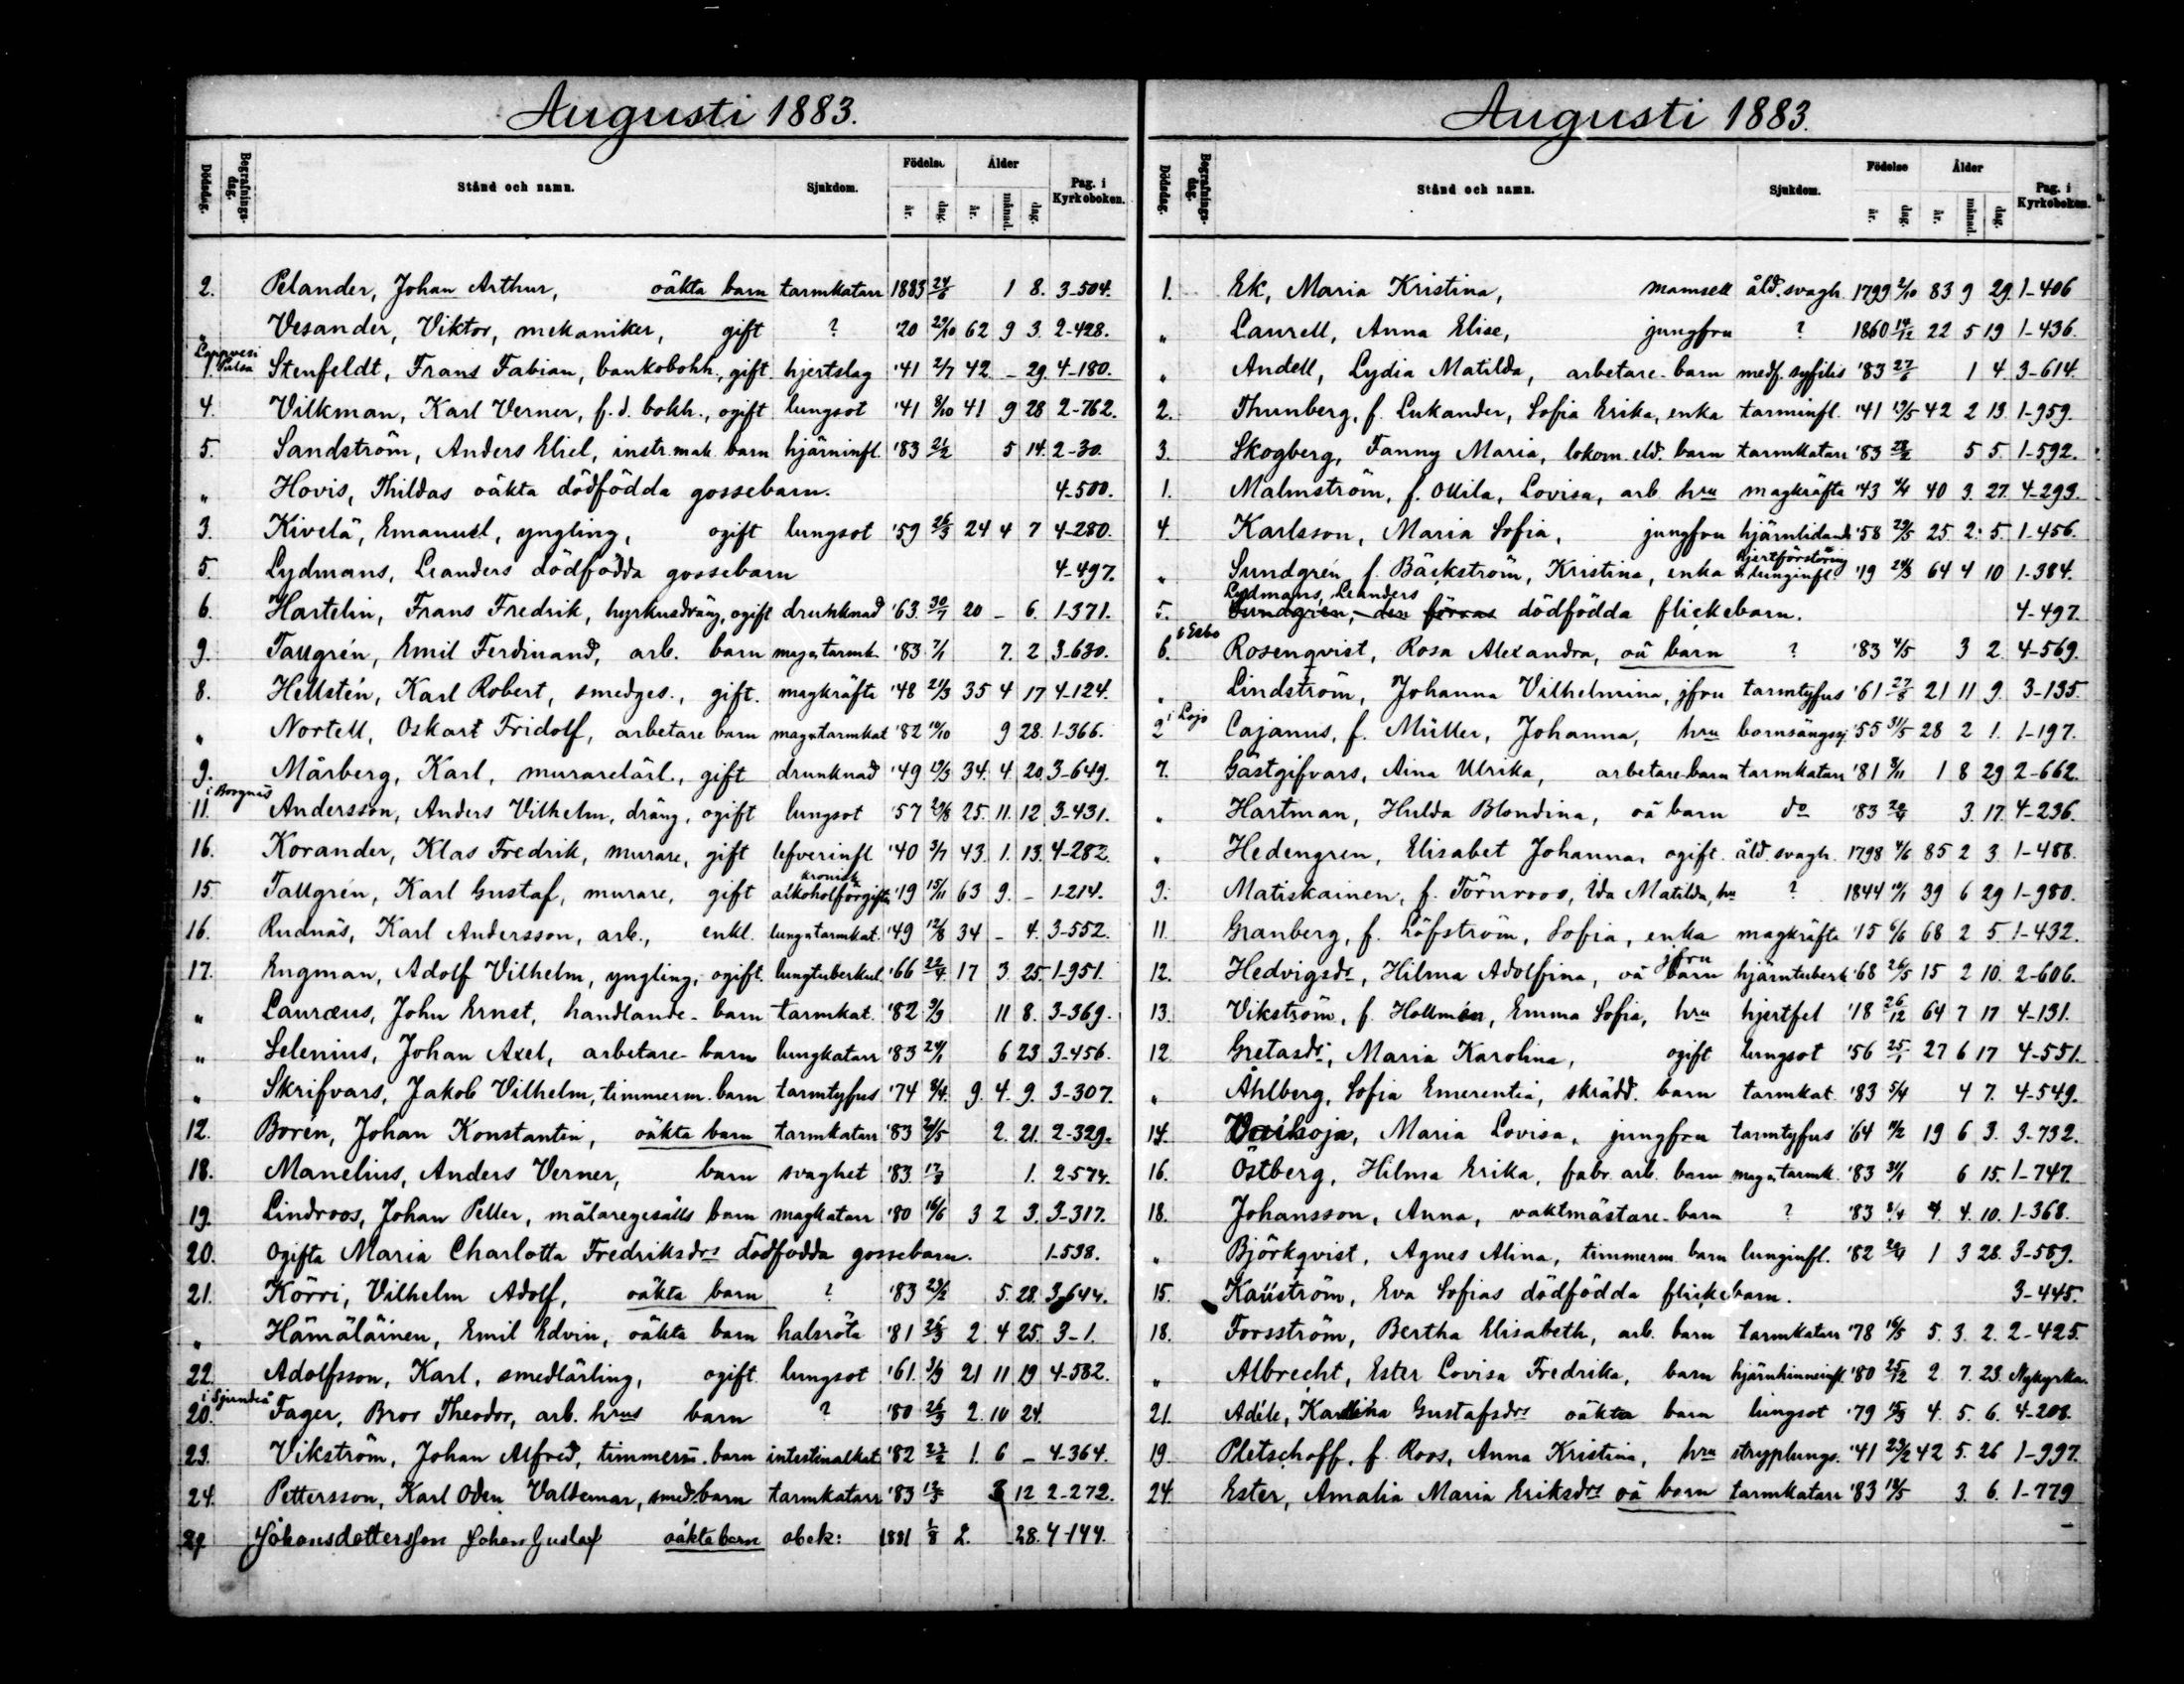 Augusti 1883.
Dödsdag. Begrafnings-dag. Stånd och namn. Sjukdom. Födelse år. dag. Ålder år. månad. dag. Pag. i Kyrkoboken.
2. Pelander, Johan Arthur, oäkta barn tarmkatarr 1883 24/6 1 8. 3-504.
" Vesander, Viktor, mekaniker, gift ? '20 29/10 62 9 3. 2-428.
1. Stenfeldt, Frans Fabian, bankobokh., gift. hjertslag '41 2/7 42 - 29. 4-180.
4. Vilkman, Karl Verner, f.d. bokh., ogift lungsot '41 8/10 41 9 28 2-762.
5. Sandström, Anders Eliel, instr.mak. barn hjärninfl. '83 21/2 5 14. 2-30.
" Hovis, Thildas oäkta dödfödda gossebarn. 4-500.
3. Kivelä, Emanuel, yngling, ogift lungsot '59 26/3 24 4 7 4-280.
5. Lydmans, Leanders dödfödda gossebarn 4-497.
6. Hartelin, Frans Fredrik, hyrkusdräng, ogift drunknad '63. 30/7 20 - 6. 1-371.
9. Tallgrén, Emil Ferdinand, arb. barn mag.tarmk. '83 7/1 7. 2 3-630.
8. Hellstén, Karl Robert, smedges., gift. magkräfta '48 21/3 35 4 17 4-124.
" Nortell, Oskart Fridolf, arbetare barn mag.tarmkat '82 10/10 9 28. 1-366.
9. Mårberg, Karl, murarelärl., gift drunknad '49 19/3 34. 4. 20. 3-649.
i Borgnäs
11. Andersson, Anders Vilhelm, dräng, ogift lungsot '57 29/8 25. 11. 12 3-431.
16. Korander, Klas Fredrik, murare, gift lefverinfl '40 3/7 43. 1. 13. 4-282.
15. Tallgrén, Karl Gustaf, murare, gift kronisk alkoholförgiftn. '19 15/11 63 9. - 1-214.
16. Rudnäs, Karl Andersson, arb., enkl. lung.tarmkat. '49 12/8 34 - 4. 3-552.
17. Engman, Adolf Vilhelm, yngling, ogift. lungtuberkul. '66 22/4. 17 3. 25. 1-951.
" Lauræus, John Ernst, handlande-barn tarmkat. '82 9/9 11 8. 3-369.
" Selenius, Johan Axel, arbetare-barn lungkatarr '83 24/1 6 23 3-456.
" Skrifvars, Jakob Vilhelm, timmerm. barn tarmtyfus '74 8/4. 9. 4. 9. 3-307.
12. Boren, Johan Konstantin, oäkta barn tarmkatarr '83 21/5 2. 21. 2-329.
18. Manelius, Anders Verner, barn svaghet '83. 17/7 1. 2-574.
19. Lindroos, Johan Petter, målaregesälls barn magkatarr '80 16/6 3 2 3. 3-317.
20. Ogifta Maria Charlotta Fredriksdrs dödfödda gossebarn. 1-538.
21. Körri, Vilhelm Adolf, oäkta barn ? '83 23/2 5. 28. 3-644.
" Hämäläinen, Emil Edvin, oäkta barn halsröta '81 26/3 2 4 25. 3-1.
22. Adolfsson, Karl, smedlärling, ogift lungsot '61. 3/9 21 11 19 4-582.
i Sjundeå
20. Fager, Bror Theodor, arb. hrus barn ? '80 26/9 2. 10 24.
23. Vikström, Johan Alfred, timmerm.barn intestinalkat. '82 23/2 1. 6 - 4-364.
24. Pettersson, Karl Oden Valdemar, smed.barn tarmkatarr '83 12/5 3 12 2-272.
29 Johansdottersson Johan Gustaf oäkta barn obek: 1881 1/8 2. 28. 4-144.
Augusti 1883.
Dödsdag. Begrafnings-dag. Stånd och namn. Sjukdom. Födelse år. dag. Ålder år. månad. dag. Pag. i Kyrkoboken.
1. Ek, Maria Kristina, mamsell åld.svagh. 1799 2/10 83 9 29. 1-406
" Laurell, Anna Elise, jungfru ? 1860 14/12 22 5 19 1-436.
" Andell, Lydia Matilda, arbetare-barn medf. syfilis '83 27/6 1 4. 3-614.
2. Thunberg, f. Lukander, Sofia Erika, enka tarminfl. '41 19/5 42 2 13. 1-959.
3. Skogberg, Fanny Maria, lokom. eld. barn tarmkatarr '83 28/2 5 5. 1-592.
1. Malmström, f. Ollila, Lovisa, arb. hru magkräfta '43 4/4 40 3. 27. 4-293.
4. Karlsson, Maria Sofia, jungfru hjärnlidande '58 29/5 25 2. 5. 1-456.
" Sundgrén f. Bäckström, Kristina, enka hjertförstöring & lunginfl. '19 24/3 64 4 10 1-384.
Lydmans, Leanders
5. Sundgren, den förras dödfödda flickebarn. 4-497.
i Esbo
6. Rosenqvist, Rosa Alexandra, oä barn ? '83 4/5 3 2. 4-569.
" Lindström, Johanna Vilhelmina, jfru tarmtyfus '61 27/8 21 11 9. 3-135.
i Lojo
2 Cajanus, f. Müller, Johanna, hru barnsängsj. '55 31/5 28 2 1. 1-197.
7. Gästgifvars, Aina Ulrika, arbetare-barn tarmkatarr '81 8/11 1 8 29 2-662.
" Hartman, Hulda Blondina, oä barn do '83 20/4 3. 17. 4-236.
" Hedengren, Elisabet Johanna, ogift åld. svagh. 1798 4/6 85 2 3 1-488.
9. Matiskainen, f. Törnroos, Ida Matilda, hru ? 1844 10/1 39 6 29 1-980.
11. Granberg, f. Löfström, Sofia, enka magkräfta '15 6/6 68 2 5. 1-432.
12. Hedvigsdr, Hilma Adolfina, oä barn jfru hjärntuberk '68 26/5 15 2 10. 2-606.
13. Vikström, f. Hollmén, Emma Sofia, hru hjertfel '18 26/12 64 7 17 4-131.
12 Gretasdr, Maria Karolina, ogift lungsot '56 25/1 27 6 17 4-551.
" Åhlberg, Sofia Emerentia, skrädd. barn tarmkat. '83 5/4 4 7. 4-549.
14. Maria Lovisa, jungfru tarmtyfus '64 11/2 19 6 3. 3-732.
16. Östberg, Hilma Erika, fabr. arb. barn mag.tarmk. '83 31/1 6 15. 1-747.
18. Johansson, Anna, vaktmästare-barn ? '83 8/4 4. 10. 1-368.
" Björkqvist, Agnes Alina, timmerm. barn lunginfl. '82 20/4 1 3 28. 3-589.
15. Kaüström, Eva Sofias dödfödda flickebarn. 3-445.
18. Forsström, Bertha Elisabeth, arb. barn tarmkatarr '78 16/5 5. 3. 2. 2-425.
" Albrecht, Ester Lovisa Fredrika, barn hjärnhinneinfl. '80 25/12 2 7. 23. Nykyrka.
21. Adéle, Karolina Gustafsdrs oäkta barn lungsot '79 15/3 4. 5. 6. 4-208.
19. Pletschoff, f. Roos, Anna Kristina, hru stryplungs. '41 23/2 42 5. 26 1-997.
24. Ester, Amalia Maria Eriksdrs oä barn tarmkatarr '83 18/5 3. 6. 1-779